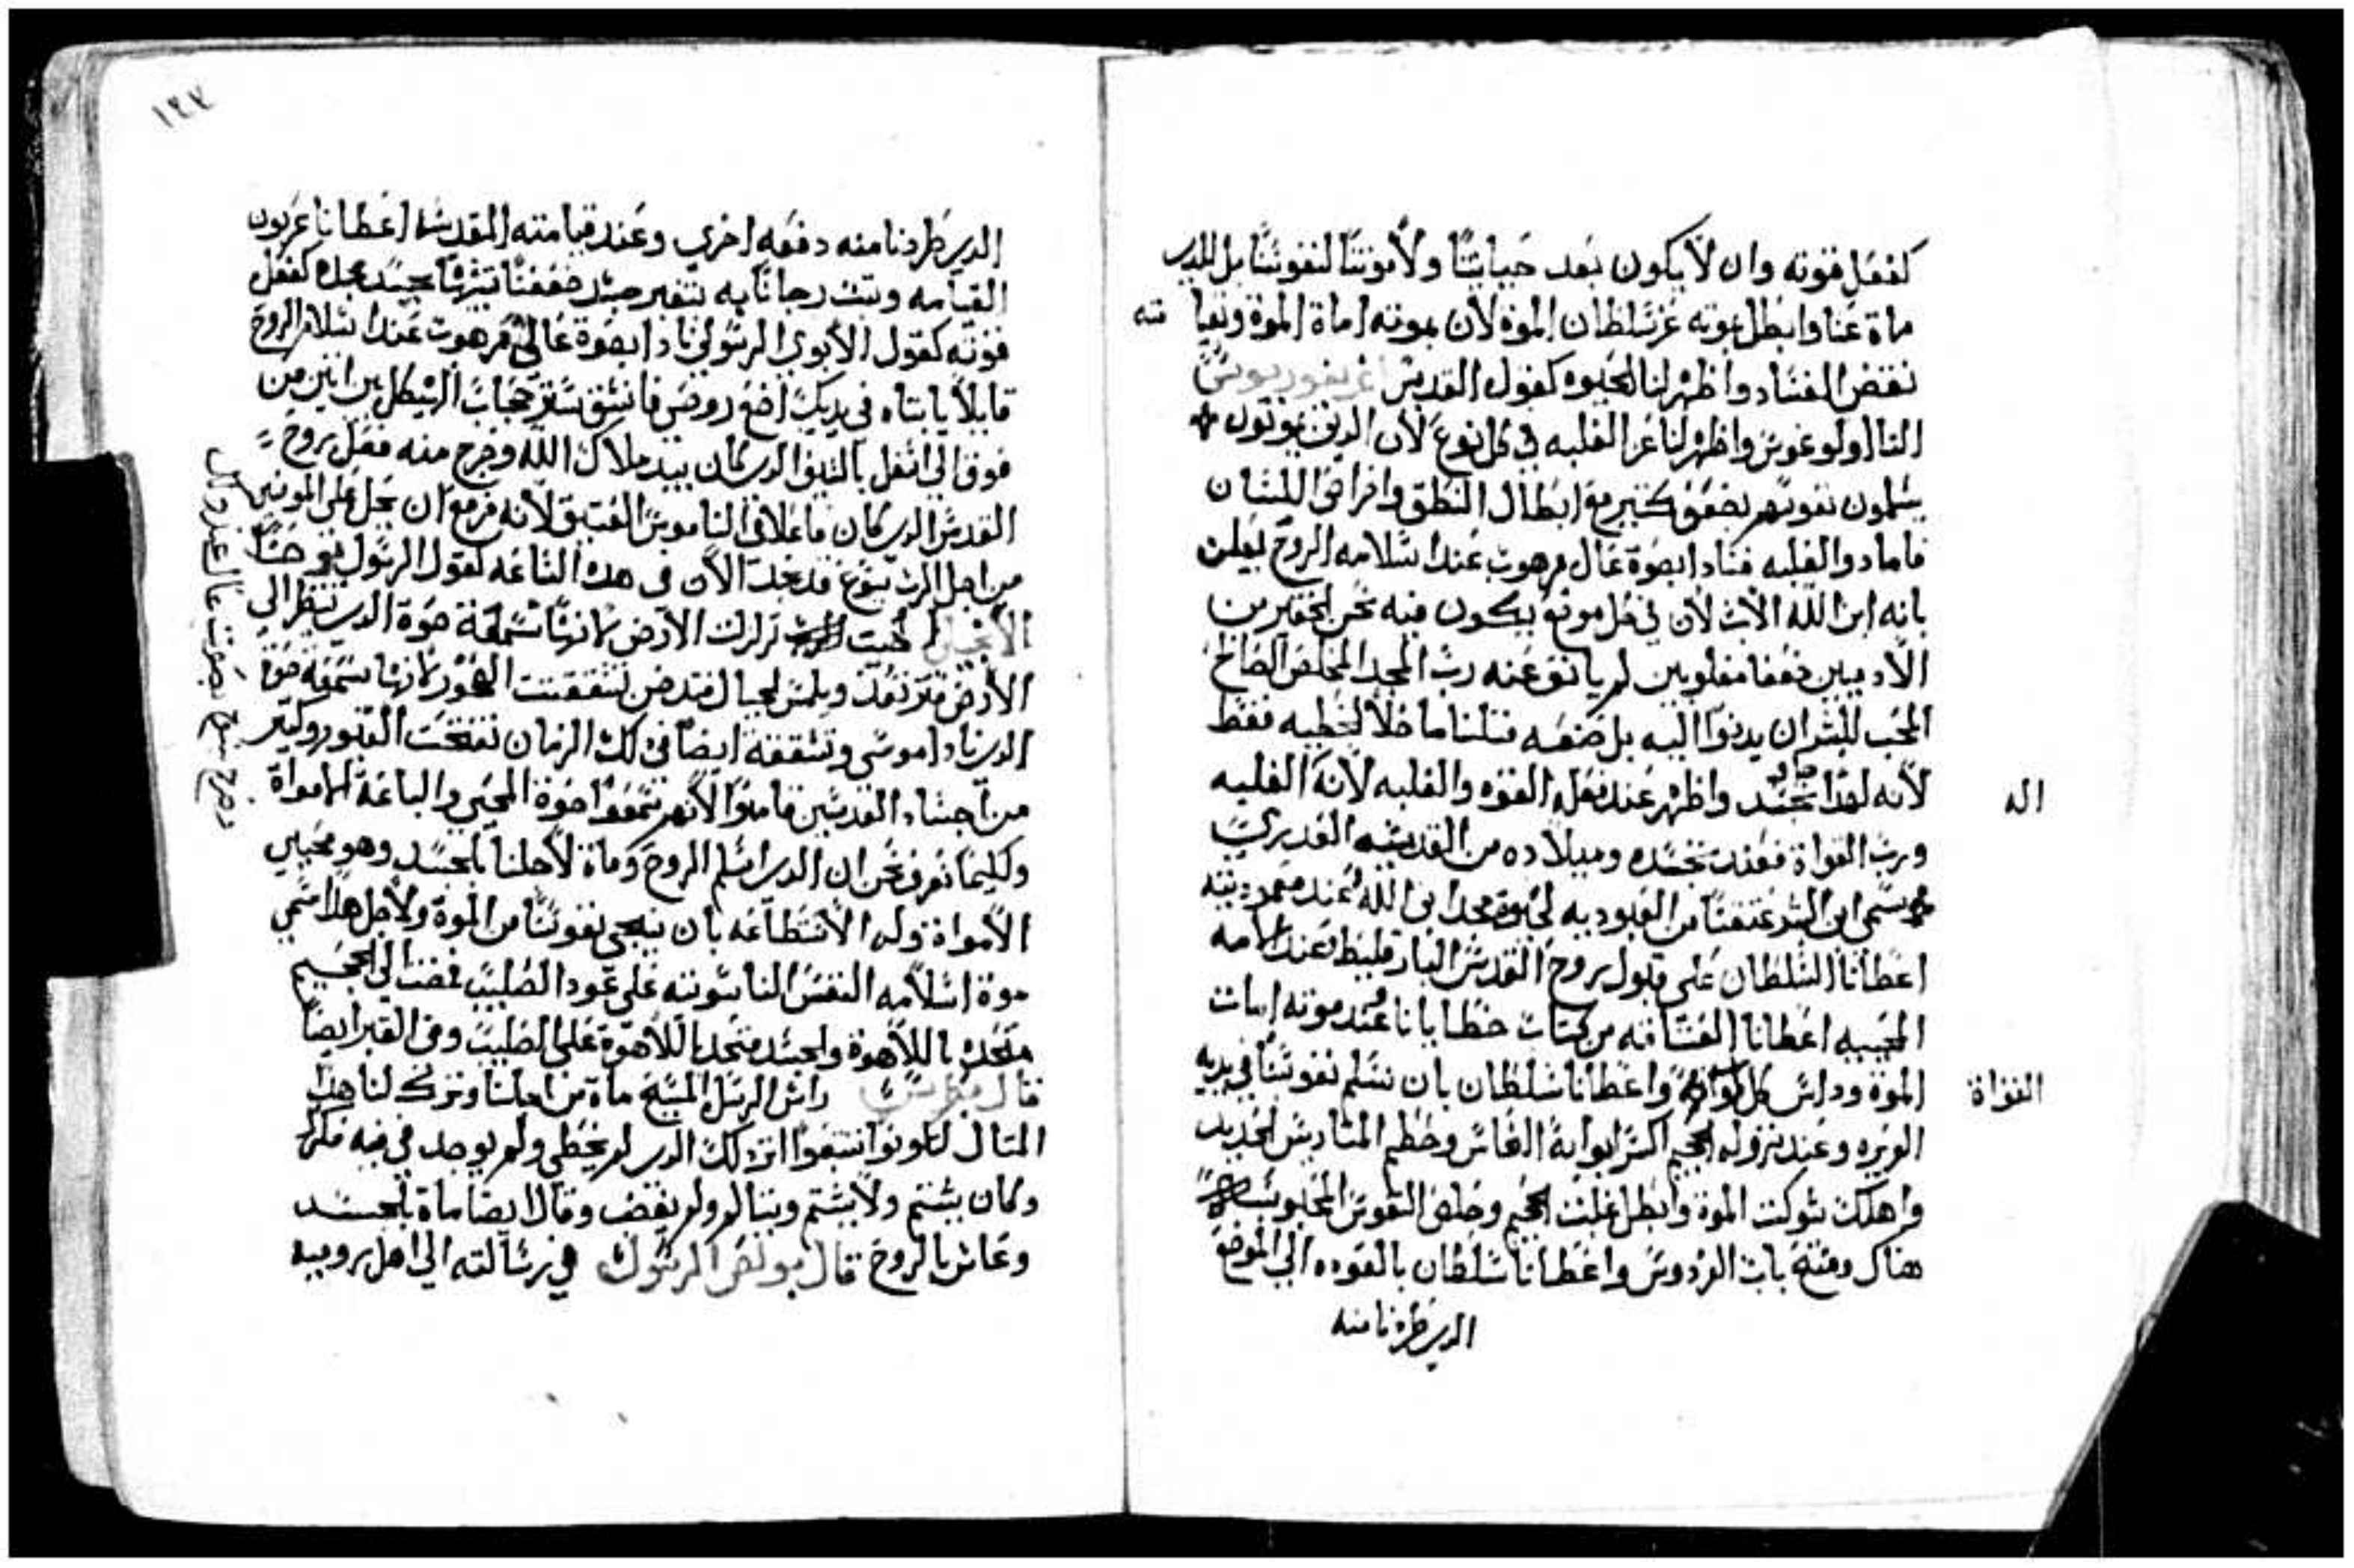 كفعل قوته وان لا يكون بعد حياتنا ولا موتنا لنفوسنا بل للدي
مات عنا وابطل بموته عز سلطان الموة لان بموته اماة الموة وبقيا
منه
نقض الفساد واظهر لنا الحيوه كقول القديس اغريغوريوس
التااولوغوس واظهر لنا عز الغلبه في كل نوع لان الدين يموتون
يسلمون نفوسهم بضعف كتير مع ابطال النطق وافراض اللسان
فاما دو الغلبه فنادا بصوة عال مرهوب عند اسلامه الروح ليعلن
بانه ابن الله الاب لان في كل موضع يكون فيه نحن الحقيرين
الادميين ضعفا مغلوبين لم يانف عنه رب المجد المخلص الصالح
المحب للبشر ان يدنوا اليه بل صنعه متلنا ما خلا الخطيه فقط
لانه لهدا تجسد واظهر عند فعله القوه والغلبه لانه الغلبه
اله
ورب القواة فعند تجسده وميلاده من القديسه العدري
سمي ابن البشر عتقنا من العبوديه لحيوة مجد ابن الله عند معموديته
اعطانا السلطان على قبول بروح القدس البارقليط عند الامه
المحييه اعطانا العتاقه من كتاب خطايانا عند موته امات
الموة وداس كل قواته واعطانا سلطان بان نسلم نفوسنا في يديه
القواة
العزيزه وعند نزوله الجحيم اكسر ابوابة النحاس وحطم المتاريس الحديد
واهلك شوكت الموة وابطل غلبت الجحيم وخلص النفوس المحبوسه
هناك وفتح باب الفردوس واعطانا سلطان بالعوده الي الموضع
الدي طردنا منه
١٤٧
الدي طردنا منه دفعه اخري وعند قيامته المقدسه اعطانا عربون
القيامه وتبت رجانا به بتغير جسد ضعفنا بجسد مجده كفعل
قوته كقول الابوي الرسولي نادا بصوة عالي مرهوب عند اسلام الروح
قايلا يا ابتاه في يديك اضع روحي فانشق ستر حجاب الهيكل من اتنين من
فوق الي اسفل بالسيف الدي كان بيد ملاك الله وخرج منه فعل بروح
القدس الدي كان فاعلا في الناموس العتيق لانه مزمع ان يحل على المومنين
من اجل الرب يسوع قد مجد الان في هده الساعه كقول الرسول يوحنا
الانجيلي تزلزلت الارض لانها سمعة صوة الدي ينظر الي
الارض فترتعد ويلمس الجبال فتدخن تشققت الصخور لانها سمعة صوة
الدي نادا موسي وتشققة ايضا في دلك الزمان تفتحت القبور وكتير
من اجساد القديسين قاموا لانهم سمعوا صوة المحيي والباعة الامواة
ولكيما نعرف نحن ان الدي اسلم الروح وماة لاجلنا بالجسد وهو محيي
الامواة وله الاستطاعه بان ينجي نفوسنا من الموة ولاجل هدا سمي
موة اسلامه النفس الناسوتيه على عود الصليب فمضت الي الجحيم
متحده باللاهوة والجسد متحد باللاهوة على الصليب وفي القبر ايضا
قال بطرس راس الرسل المسيح ماة من اجلنا وترك لنا هدا
المتال لتكونوا تتبعوا اتر دلك الدي لم يخطي ولم يوجد في فيه مكر
وكان يشتم ولا يشتم ويتالم ولم يغضب وقال ايضا ماة بالجسد
وعاش بالروح قال بولص الرسول في رسالته الي اهل روميه